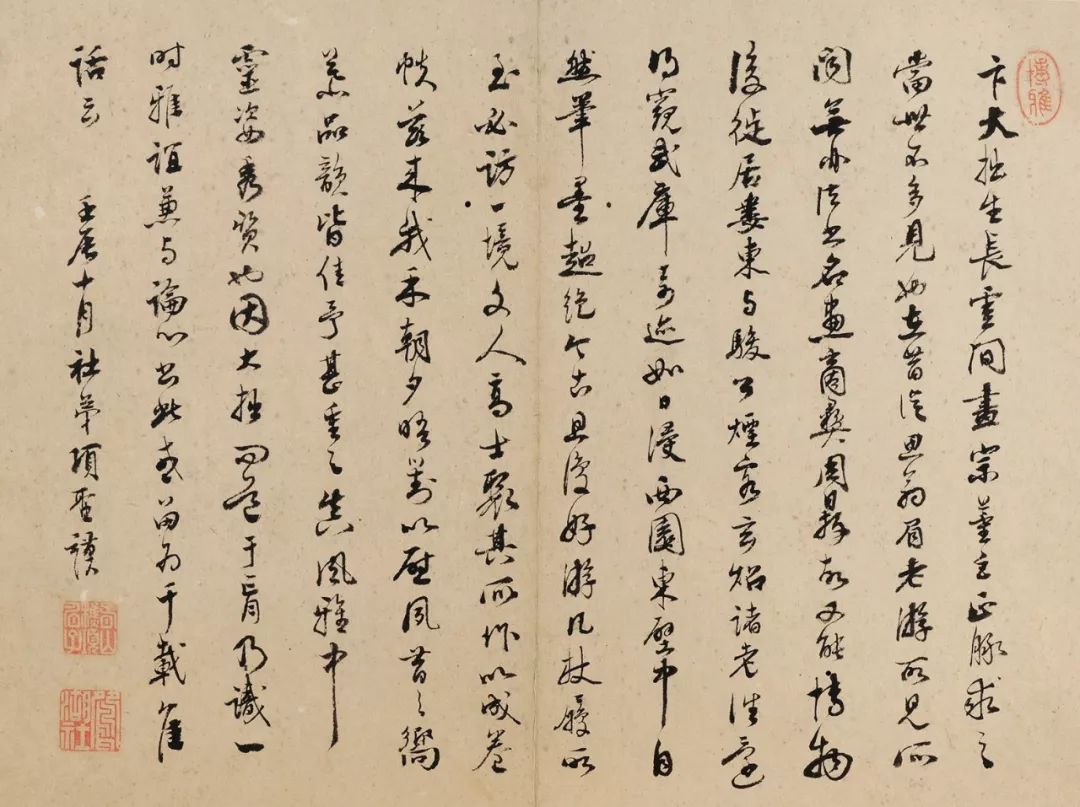 博雅
卞大拙生長雲間畫宗董巨正脉求之
當世不多見也在昔從思翁眉老游所見所
聞無非法書名畫商彝周鼎故又能博物
後徙居婁東與駿公煙客玄炤諸老往還
得窺武庫奇迹如日浸西園東壁中自
然筆墨超絕今古且復好游凡杖屨所
至必訪一境文人高士聚其所作以成卷
帙茲來我禾朝夕晤對以慰夙昔之嚮
慕品韻皆佳予甚重之真風雅中
靈姿秀質也因大拙于肩乃識一
時雅誼兼與論心書此或留為千載佳
話云 壬辰十月社弟項聖謨